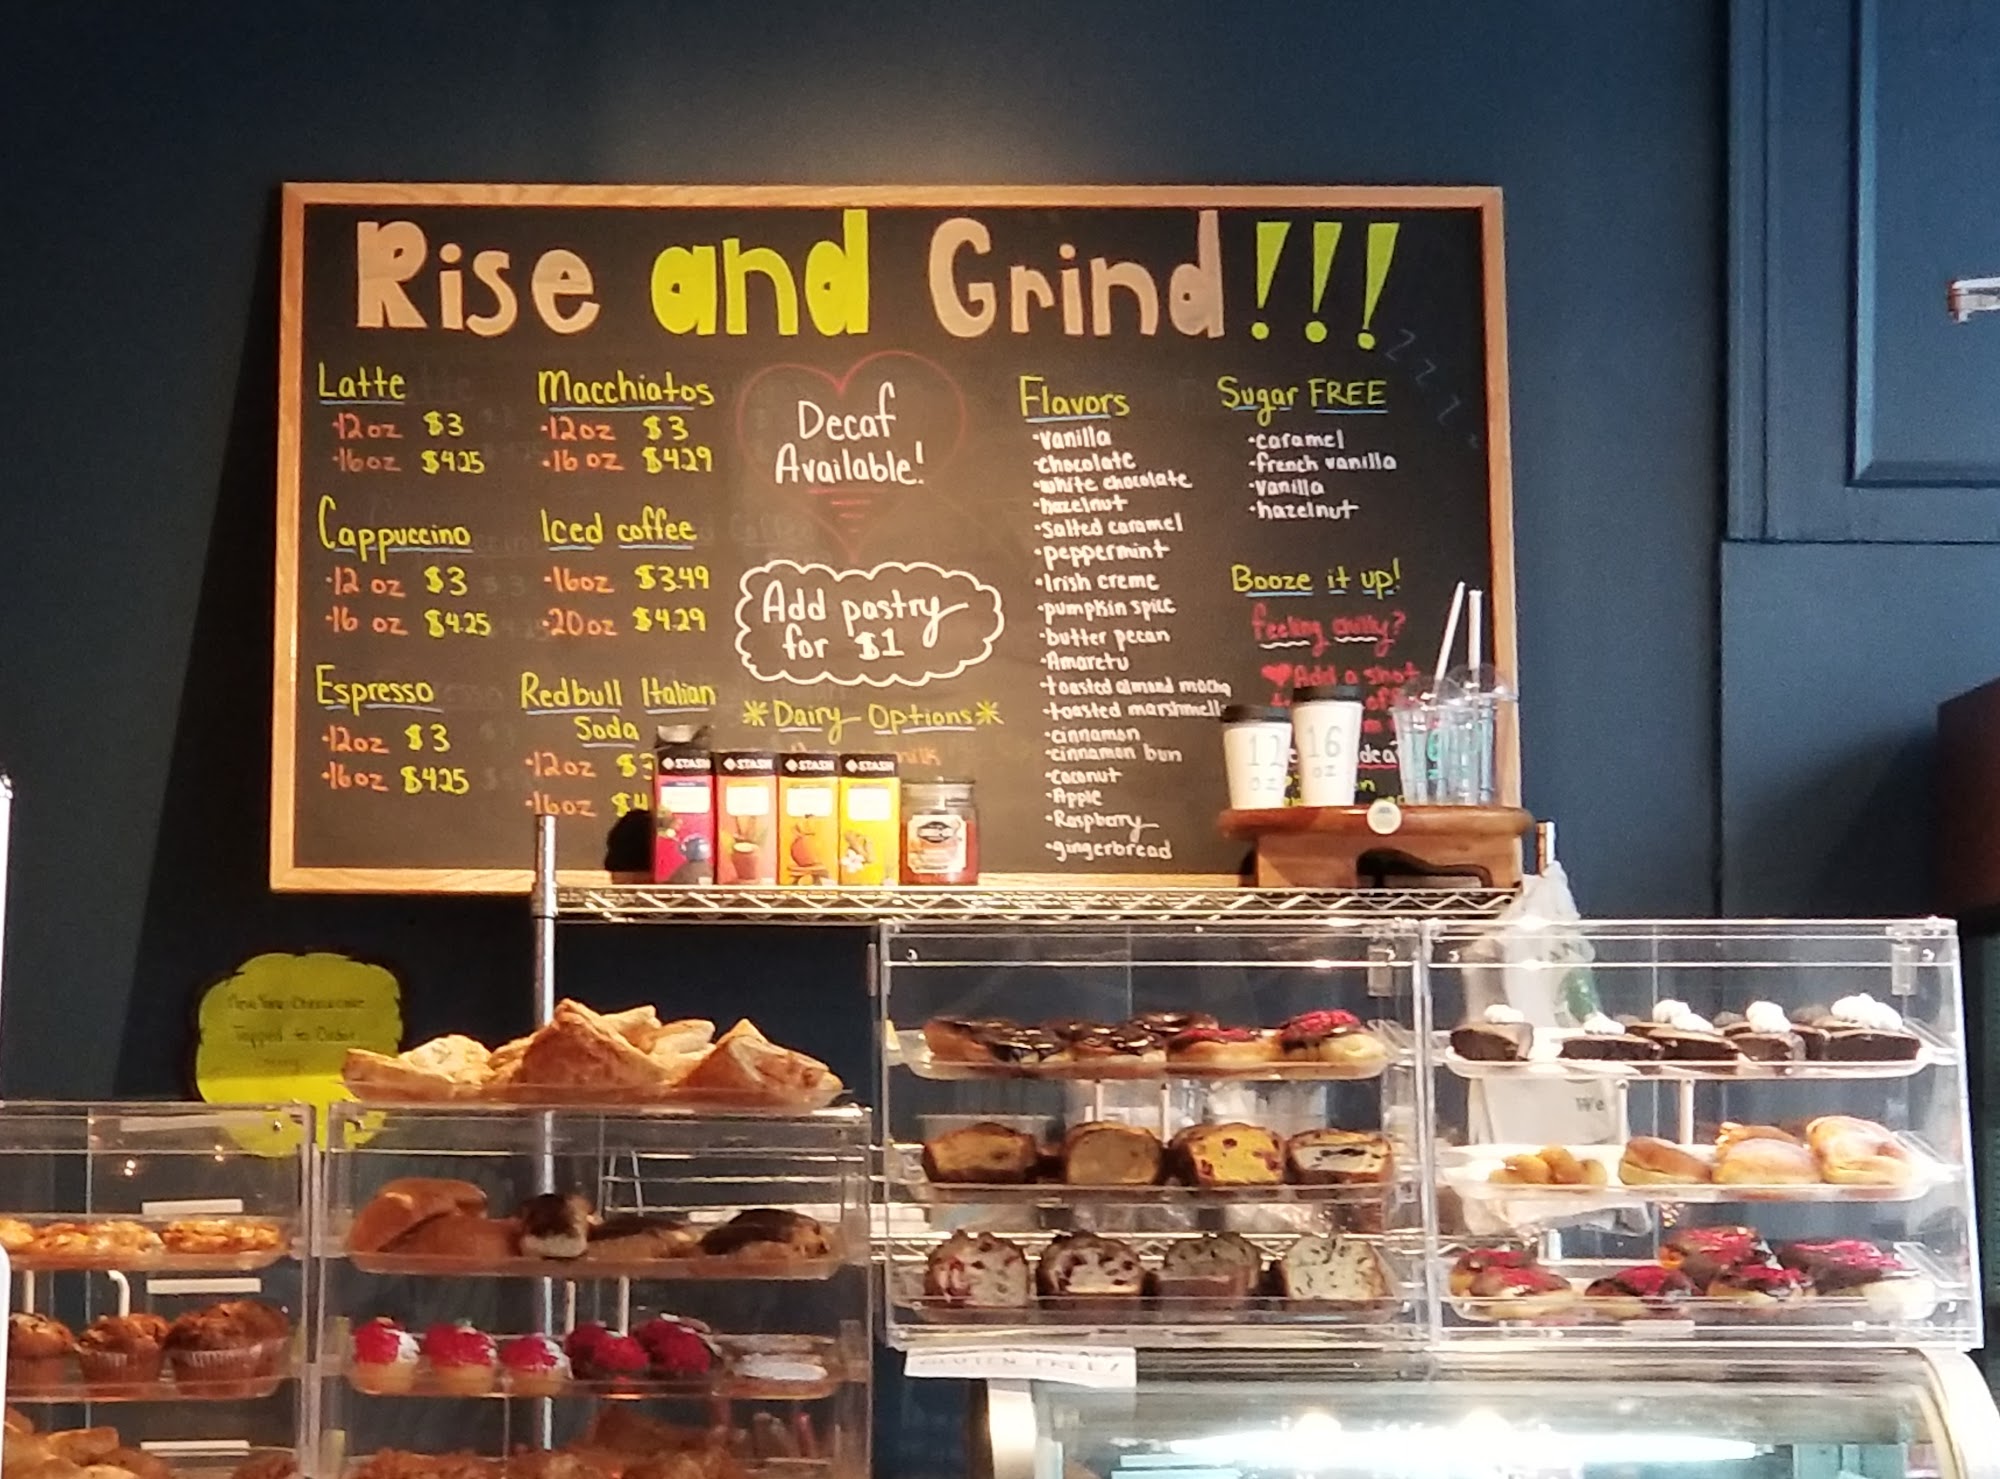 Rise and Grind!!!
Latte
·12oz $3
·16oz $4.25
Cappuccino
·12 oz $3
·16 oz $4.25
Espresso
·12oz $3
·16oz $4.25
Macchiatos
·12oz $3
·16 oz $4.29
Iced coffee
·16oz $3.49
·20oz $4.29
Redbull Italian
Soda
·12oz $3
·16oz $4
Decaf
Available!
Add pastry
for $1
*Dairy Options*
milk
Flavors
·vanilla
·chocolate
·white chocolate
·hazelnut
·salted caramel
·peppermint
·Irish creme
·pumpkin spice
·butter pecan
·Amaretu
·toasted almond mocha
·toasted marshmell
·cinnamon
·cinnamon bun
·coconut
·Apple
·Raspberry
·gingerbread
Sugar FREE
·caramel
·french vanilla
·vanilla
·hazelnut
Booze it up!
feeling chilly?
Add a shot
zzzz
STASH
STASH
STASH
STASH
12
oz
16
oz
New York Cheesecake
Topped to Order
We
GLUTEN FREE!